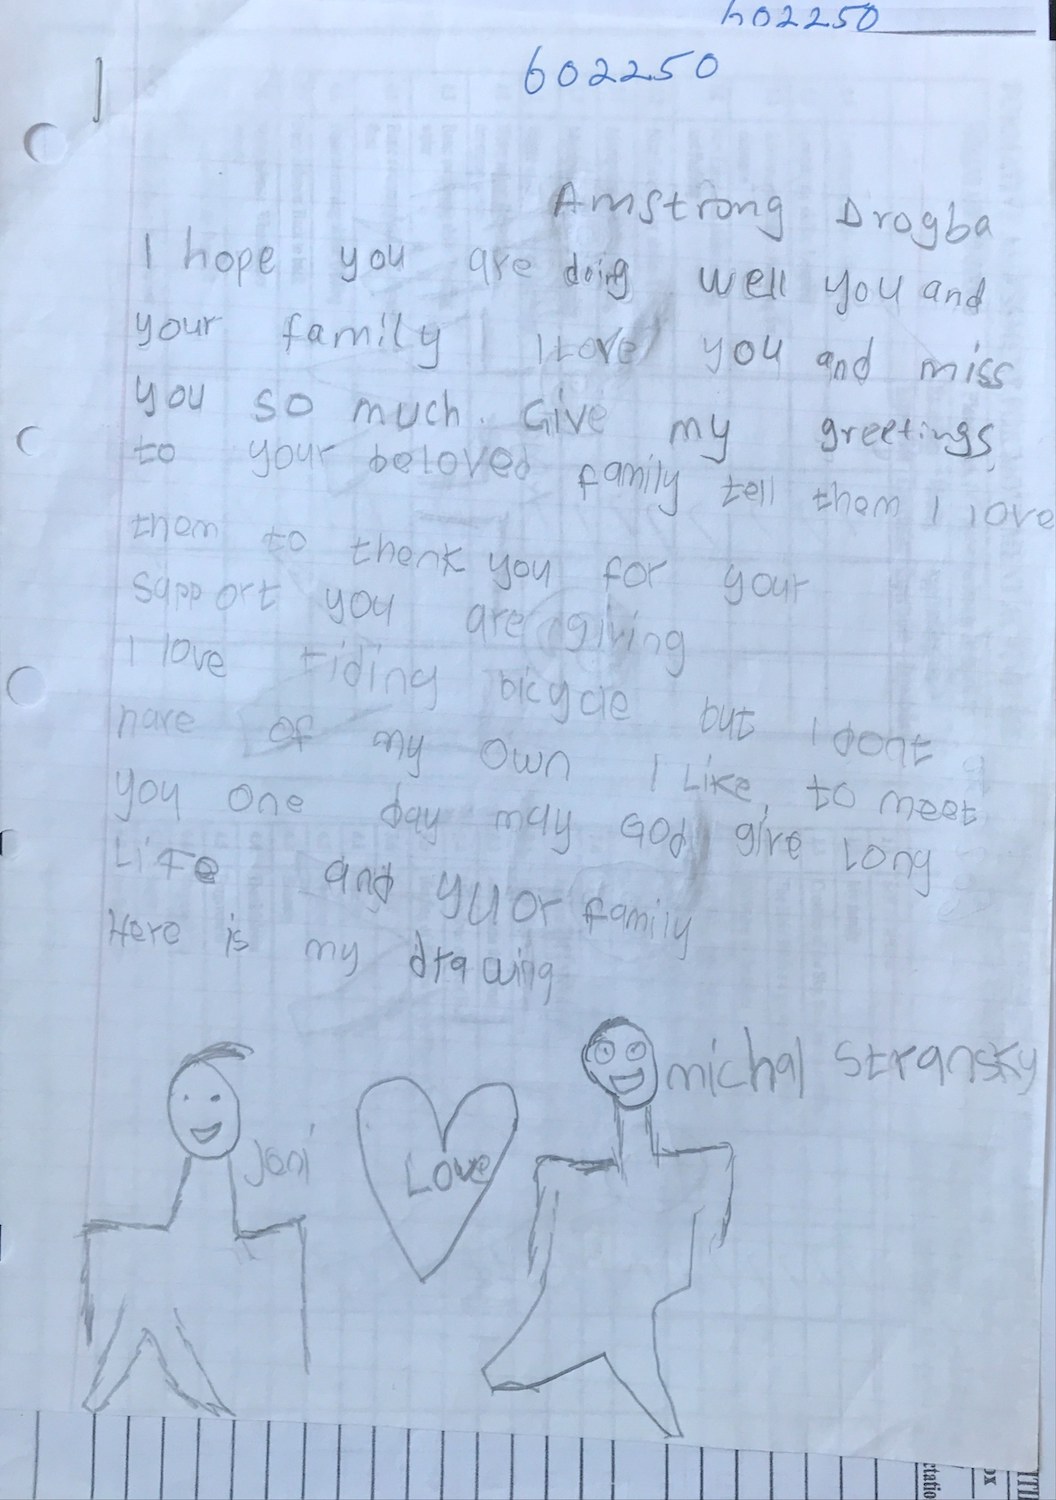 602250
602250
Amstrong Drogba
I hope you are doing well you and
your family I love you and miss
you so much. Give my greetings
to your beloved family tell them I love
them to thenk you for your
sapport you are giving
I love riding bicycle but I dont
have of my own I Like to meet
you one day may God give long
Life and yuor family
Here is my drawing
michal Stransky
Joni
Love